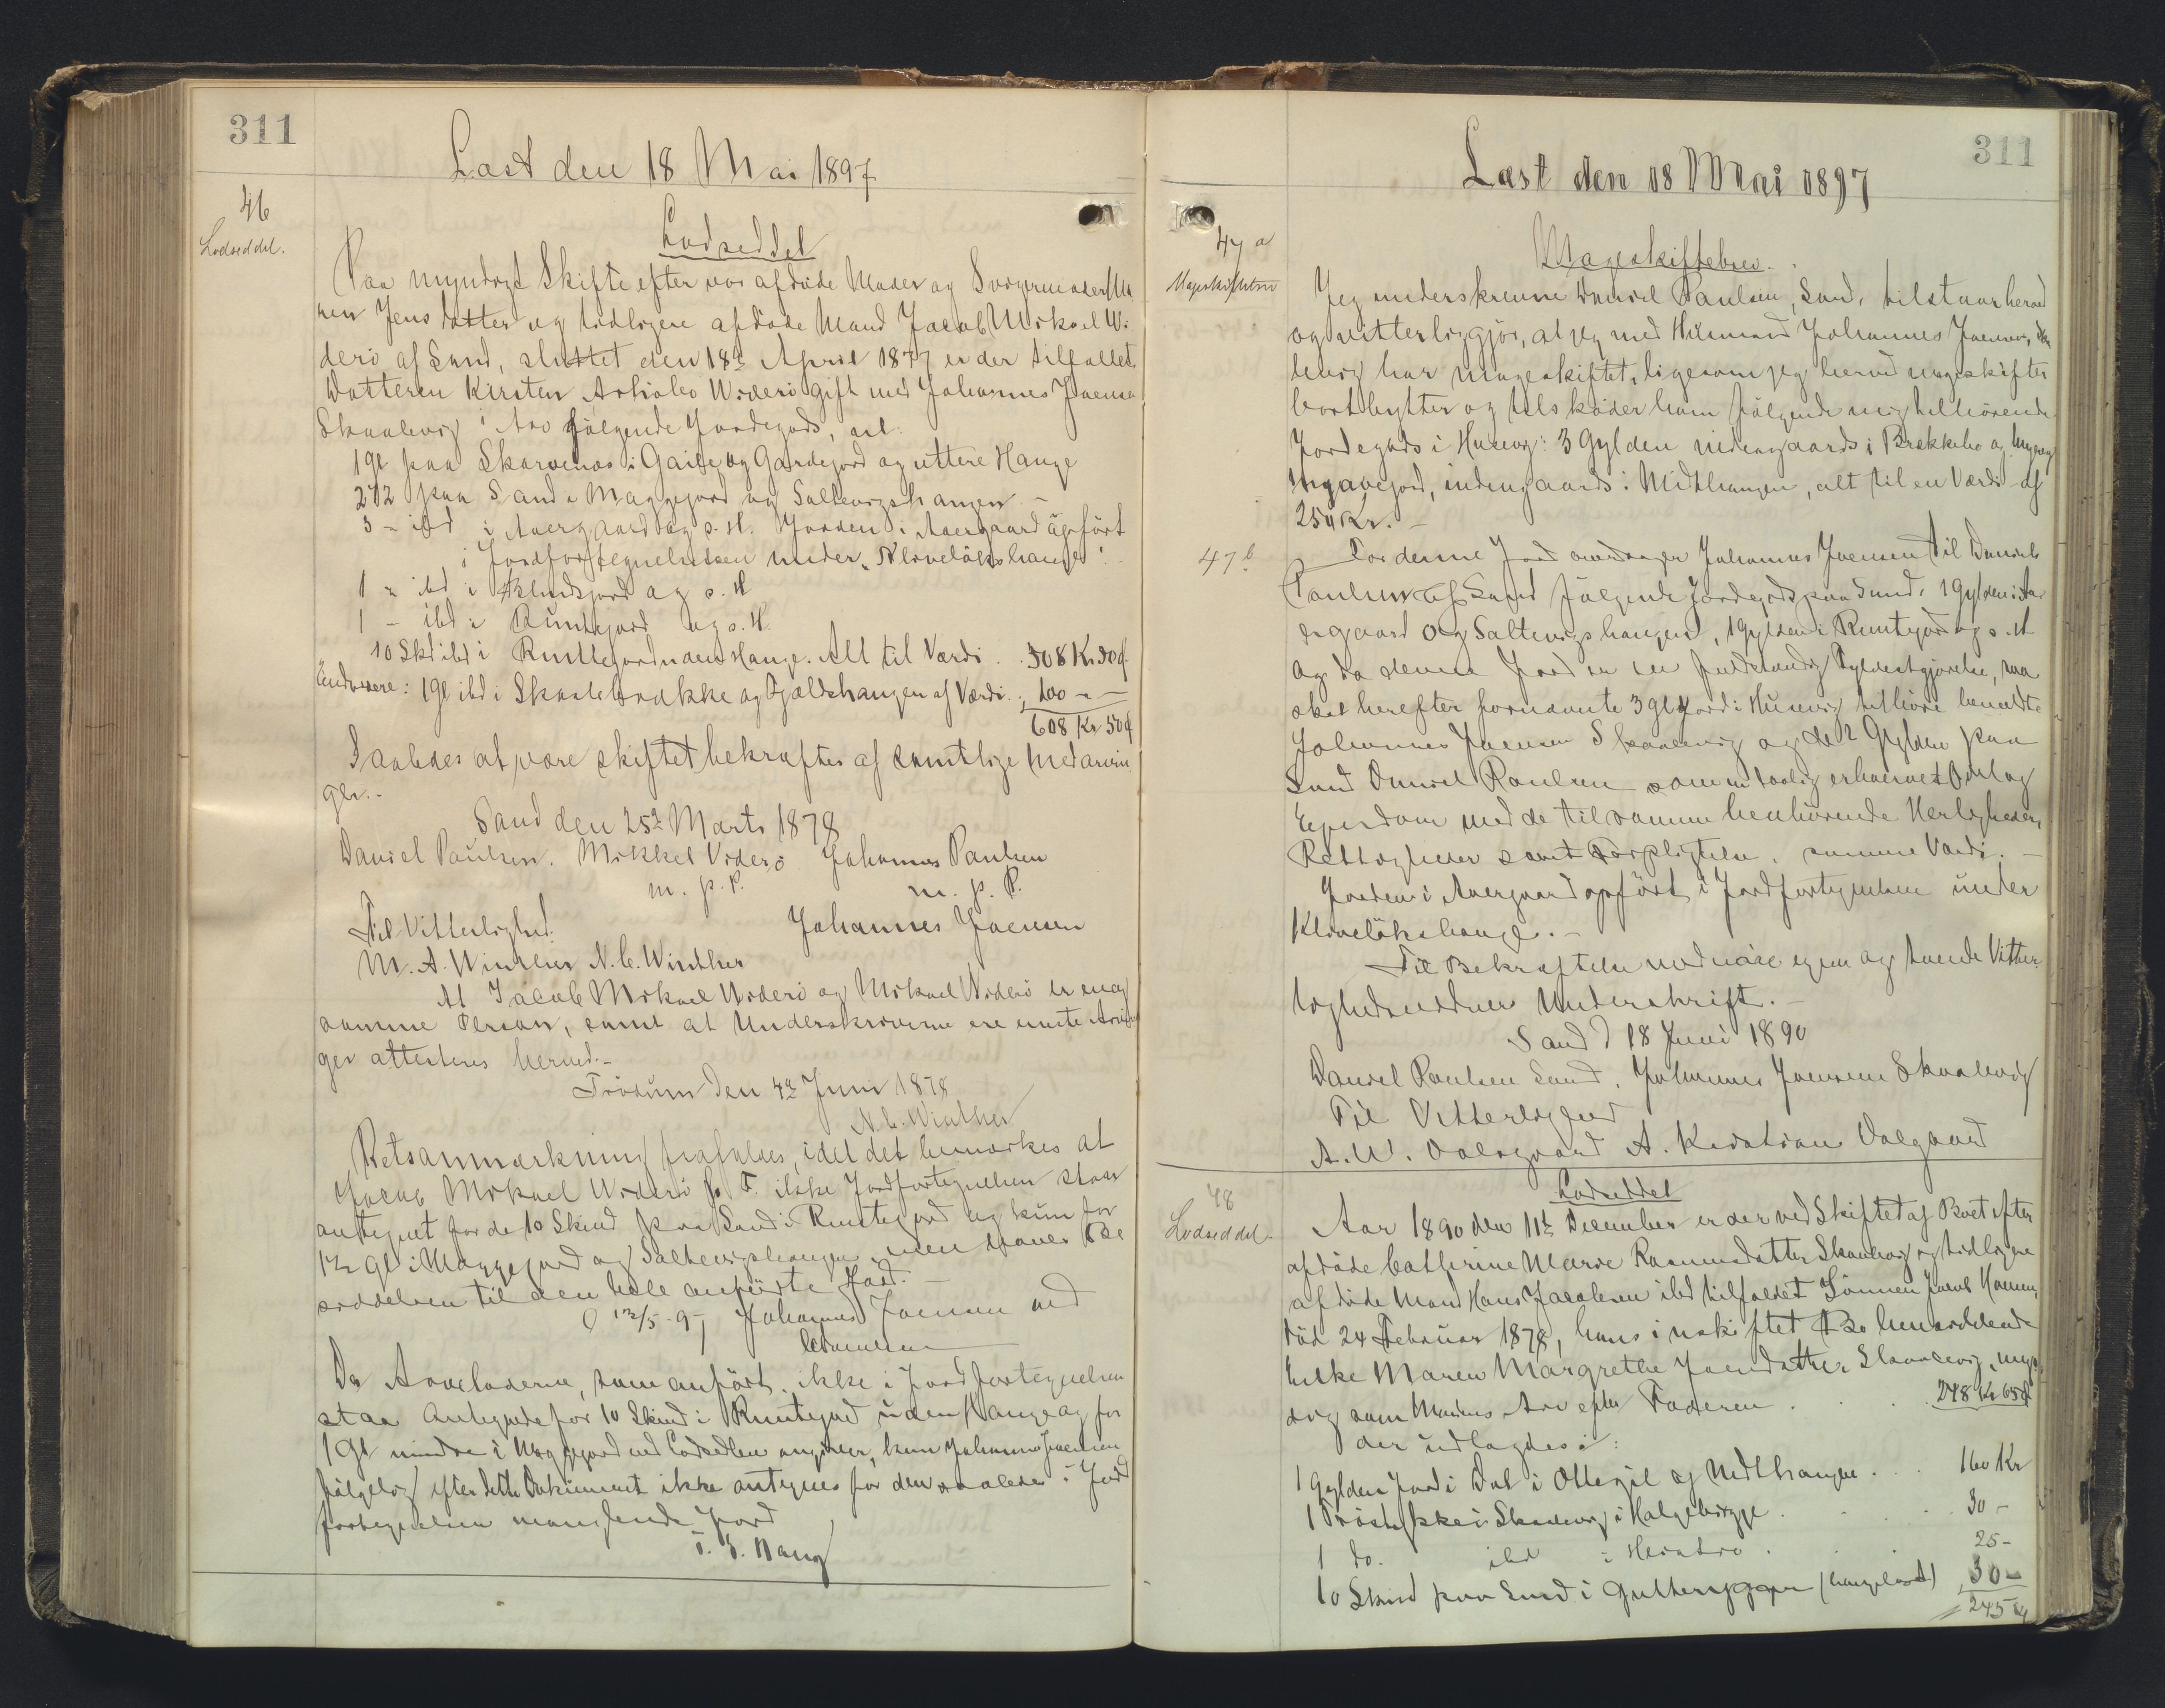 311
Læst den 18 Mai 1897
46
Lodseddel.
Lodseddel
Paa myndigt Skifte efter vor afdöde Moder og Svigermoder
Jens datter og tidligere afdöde Mand Jacob Mikael Wi
derö af Sand, sluttet den 18de April 1877 er der tilfaldet
Datteren Kirsten Widerö gift med Johannes Joensen
Skaalevig i Arv fölgende Jordegods, nl:
1 gl paa Skarvenæs i og Gardejord og uttere Hauge
2 1/2 paa Sand i Maggejord og Saltevigshaugen –
3 – ibd i Avergaard og s. H. Jorden i Avergaard opfört
i Jordfortegnelsen under "Kliveløkshauge".
1 – ibd i Blindsjord og s. H
1 – ibd i Runtejord og s. H.
10 Skd ibd i Runtejord uden Hauge. Alt til Værdi . . 508 Kr 50 ø
Endvidere: 1 gl ibd i Skaalebrække og Fjeldshaugen af Værdi . 100 – –
608 Kr 50 ø
Saaledes at være skiftet bekræftes af samtlige Medarvin
ger. –
Sand den 25de Marts 1878
Daniel Paulsen. Mikkel Viderö Johannes Paulsen
m. p. P. m. p. P.
Til Vitterlighed. Johannes Joensen
M. A. Winther N. C. Winther
At Jacob Mikael Widerö og Mikael Widerö er en og
samme Person, samt at Underskriverne ere eneste Arvin
ger attesteres herved. –
Trödum den 4de Juni 1878
N. C. Winther
Retsanmærkning frafaldes, idet det bemærkes at
Jacob Mikael Widerö p. T. ikke Jordfortegnelsen staar
antegnet for de 10 Skind paa Sand i Runtejord og kun for
1 1/2 gl i Maggejord og Saltevigshaugen, men haver Be
siddelsen til den hele anførte Jord. –
12/5 – 97 Johannes Joensen ved
Da Arveladerne, som anfört, ikke i Jordfortegnelsen
staa antegnede for 10 Skind i Runtejord uden Hauge og for
1 Gl mindre i Maggejord end Lodsedlen angiver, kan Johannes Joensen
fölgelig efter dette Dokument ikke antegnes for den saaledes i Jord
fortegnelsen manglende Jord
311
Læst den 18 Mai 1897
47 a
Mageskiftebrev
Mageskiftebrev.
Jeg underskrevne Daniel Paulsen, Sand, tilstaar herved
og vitterliggjör, at jeg med Husmand Johannes Joensen, Skaa
levig har mageskiftet, ligesom jeg herved mageskifter
bortbytter og tilsköder ham fölgende mig tilhörende
Jordegods i Husevig: 3 Gylden indengaards i Brekkebo og
indengaards i Midthaugen, alt til en Værdi af
254 Kr. –
47 b
For denne Jord overdrager Johannes Joensen til Daniel
Paulsen af Sand fölgende Jordegods paa Sand: 1 Gylden i Av
ergaard og Saltevigshaugen, 1 Gylden i Runtejord og s. H
og da denne Jord er en fuldstændig Fyldestgjörelse, saa
skal herefter fornævnte 3 gl Jord i Husevig tilhöre bemeldte
Johannes Joensen Skaalevig og de 2 Gylden paa
Sand Daniel Paulsen som en lovlig erhvervet Odel og
Ejendom med de til samme henhörende Herligheder,
Rettigheder samt Forpligtelser, samme Værdi. –
Jorden i Avergaard opfört i Jordfortegnelsen under
Kliveløkshauge. –
Til Bekræftelse med min egen og tvende Vitter
lighedsvidners Underskrift. –
Sand d 18 Juni 1890
Daniel Paulsen Sand. Johannes Joensen Skaalevig
Til Vitterlighed
A. W. Dalsgaard A. Kristian Dalgaard
48
Lodseddel.
Lodseddel
Aar 1890 den 11te December er der ved Skiftet af Boet efter
afdöde Cathrine Marie Rasmusdatter Skaalevig og tidligere
afdöde Mand Hans Jacobsen ibd tilfaldet Sönnen Jacob Hansen,
död 24 Februar 1878, hans i uskiftet Bo hensiddende
Enke Maren Margrethe Joensdatter Skaalevig,
som Mandens Arv efter Faderen . . . . 248 Kr 65 ø
der udlagdes i:
1 Gylden Jord i Dal i Ottegil og Nedthaugen . . . 160 Kr
1 i Skaalevig i Halgebrygge . . . 30 –
1 do. ibd i . . 25 –
10 Skind paa Sand i (haugeløst) 30 –
245 Kr